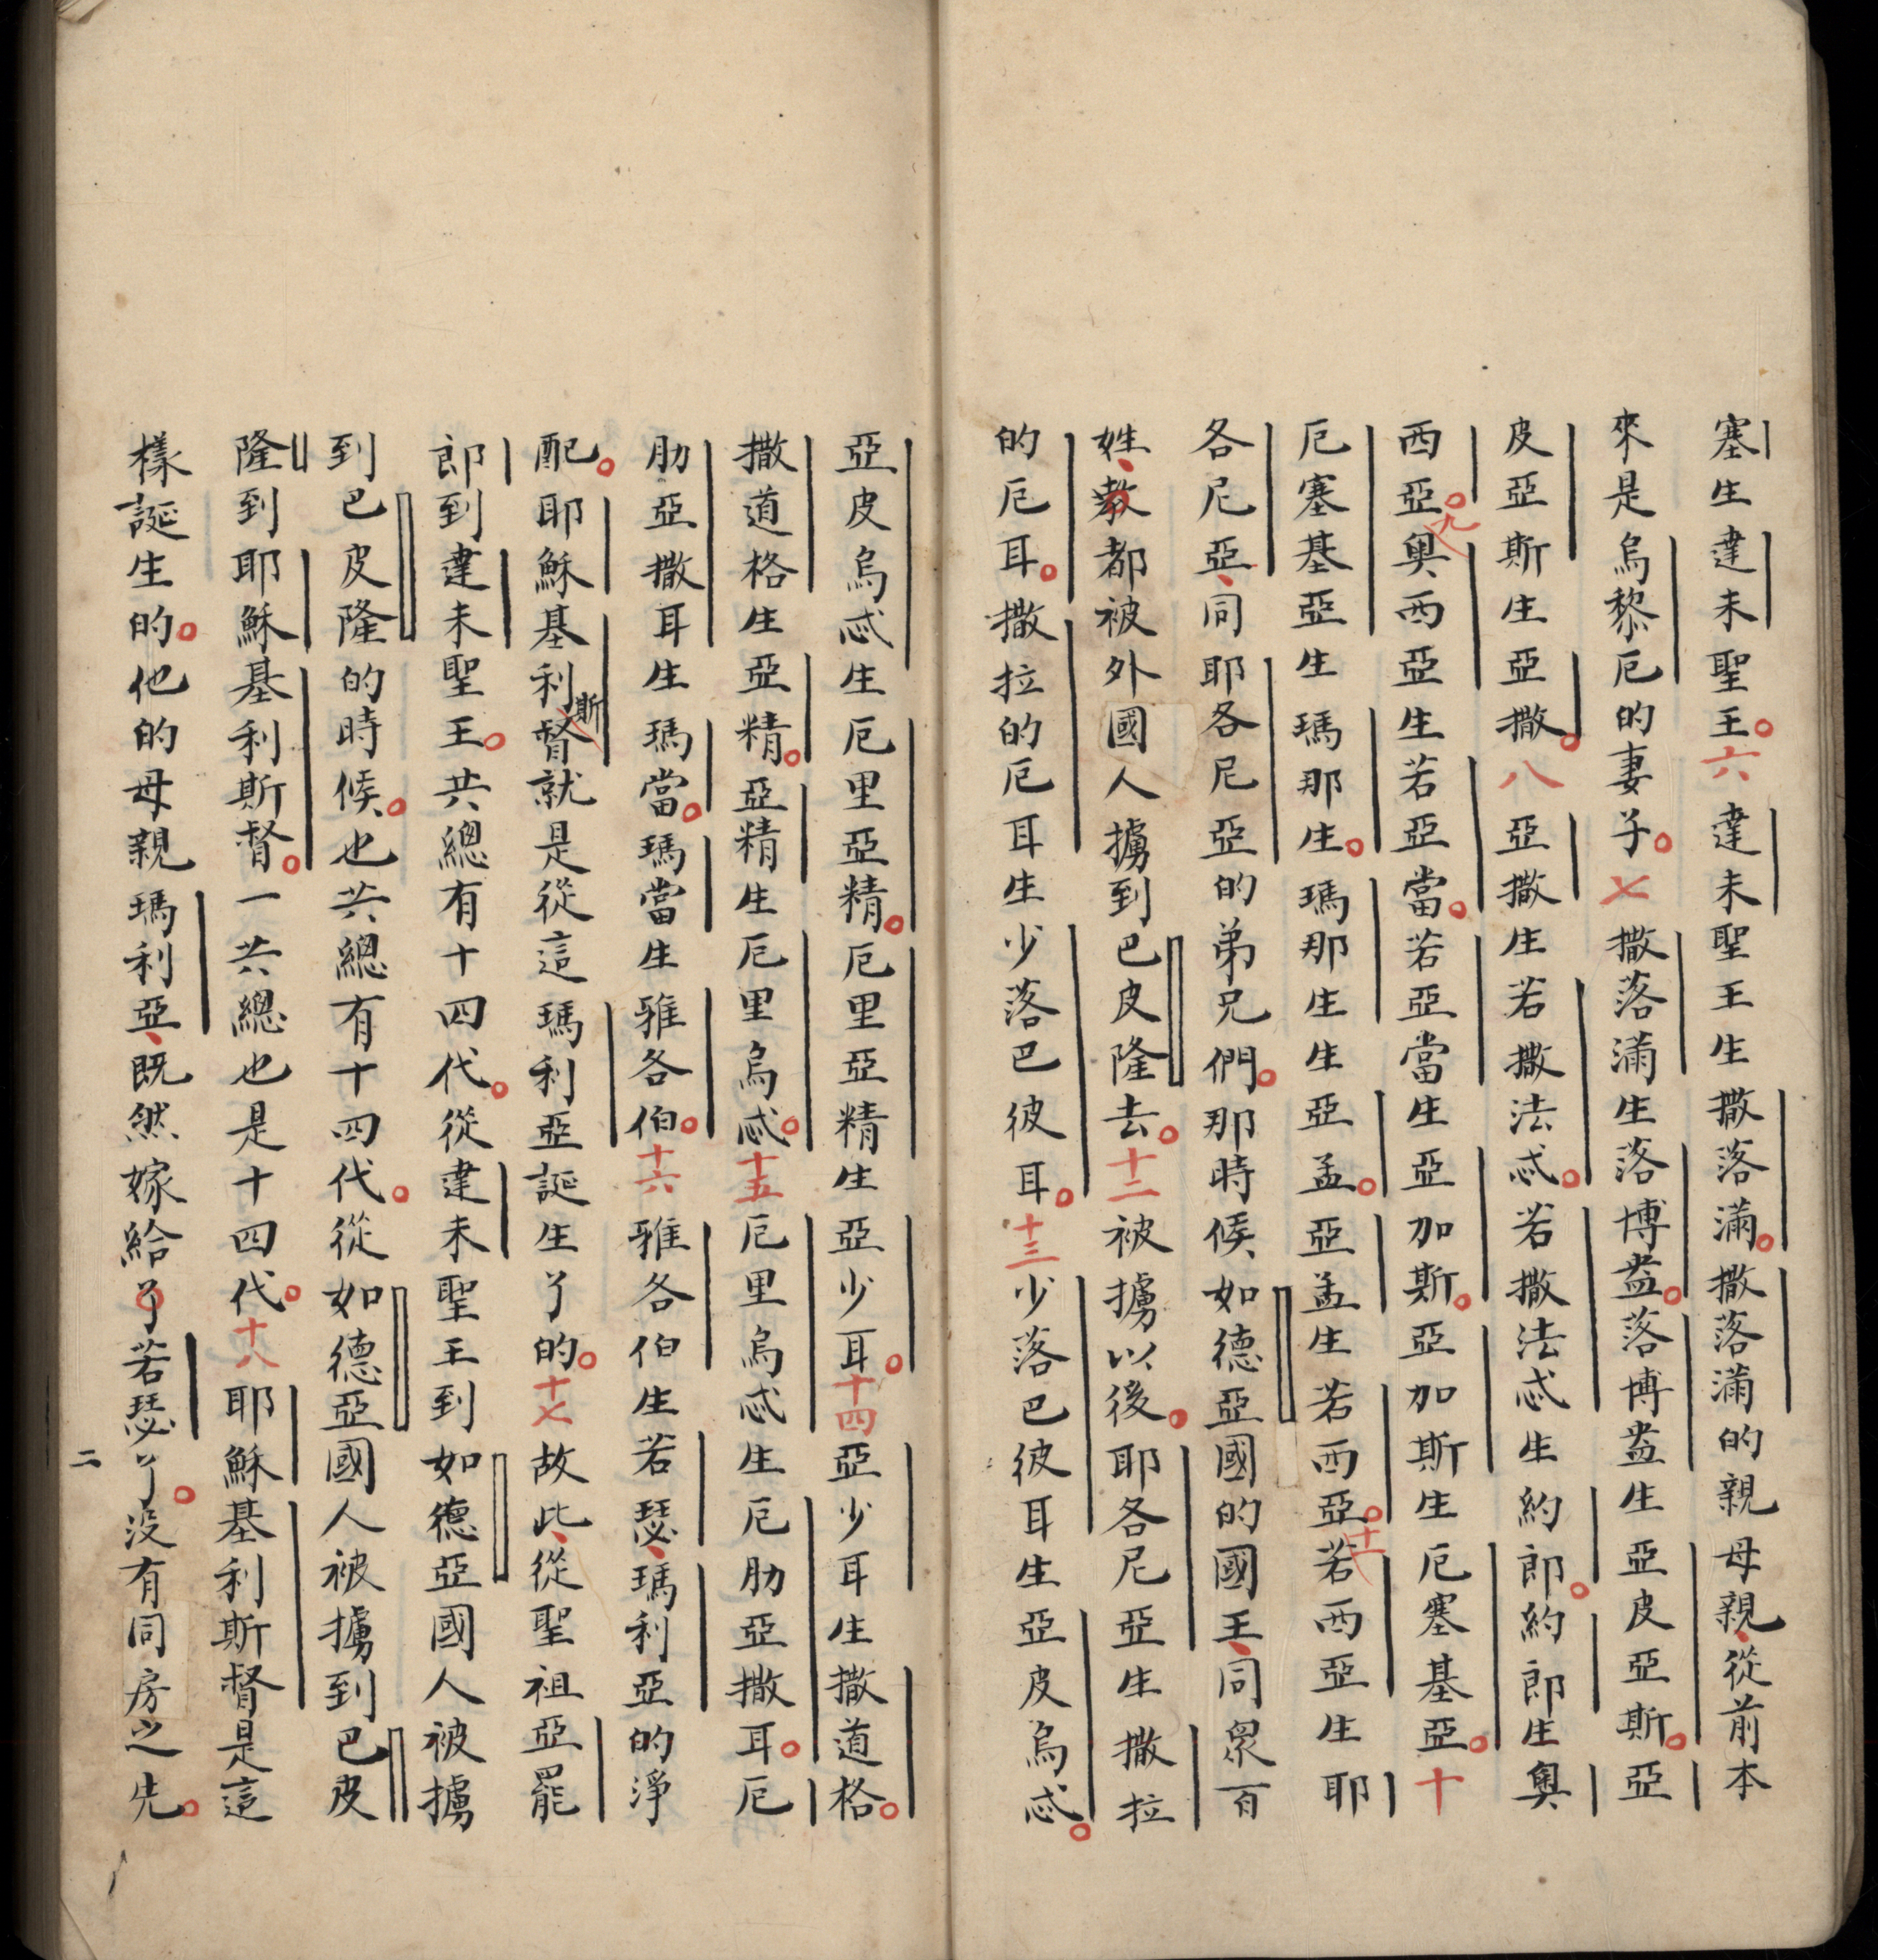 塞生達未聖王。六達未聖王生撒落滿。撒落滿的親母親、從前本
來是烏黎厄的妻子。七撒落滿生落博盎。落博盎生亞皮亞斯。亞
皮亞斯生亞撒。八亞撒生若撒法忒。若撒法忒生約郎。約郎生奧
西亞。九奧西亞生若亞當。若亞當生亞加斯。亞加斯生厄塞基亞。十
厄塞基亞生瑪那生。瑪那生生亞孟。亞孟生若西亞。十一若西亞生耶
各尼亞、同耶各尼亞的弟兄們。那時候、如德亞國的國王、同眾百
姓、教都被外國人擄到巴皮隆去。十二被擄以後。耶各尼亞生撒拉
的厄耳。撒拉的厄耳生少落巴彼耳。十三少落巴彼耳生亞皮烏忒。
亞皮烏忒生厄里亞精。厄里亞精生亞少耳。十四亞少耳生撒道格。
撒道格生亞精。亞精生厄里烏忒。十五厄里烏忒生厄肋亞撒耳。厄
肋亞撒耳生瑪當。瑪當生雅各伯。十六雅各伯生若瑟、瑪利亞的淨
配。耶穌基利斯督就是從這瑪利亞誕生了的。十七故此、從聖祖亞罷
郎到達未聖王。共總有十四代。從達未聖王到如德亞國人被擄
到巴皮隆的時候。也共總有十四代。從如德亞國人被擄到巴皮
隆到耶穌基利斯督。一共總也是十四代。十八耶穌基利斯督是這
樣誕生的。他的母親瑪利亞、既然嫁給了若瑟了。沒有同房之先。
二